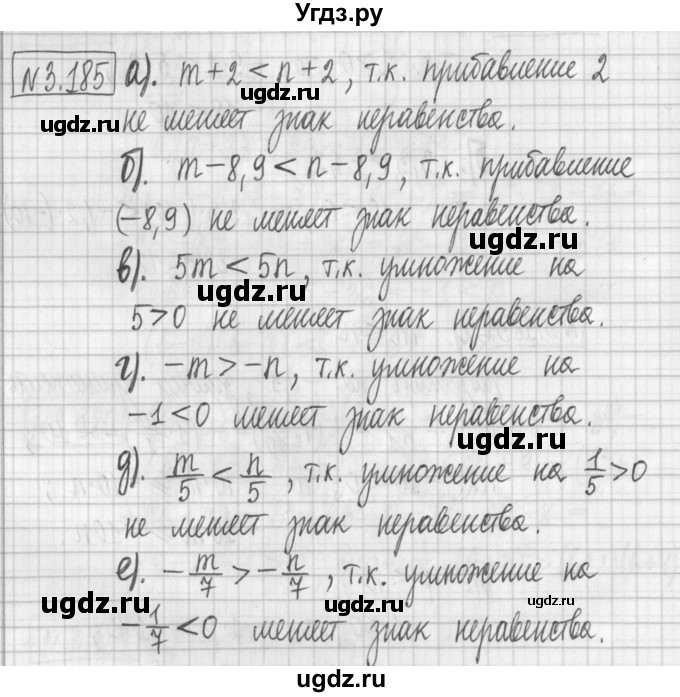 Угдз.ру
N3.185 а). m+2<n+2, т.к. прибавление 2
не меняет знак неравенства.
б). m-8,9<n-8,9, т.к. прибавление
(-8,9) не меняет знак неравенства.
в). 5m<5n, т.к. умножение на
5>0 не меняет знак неравенства.
г). -m>-n, т.к. умножение на
-1<0 меняет знак неравенства.
д). m/5<n/5, т.к. умножение на 1/5>0
не меняет знак неравенства.
е). -m/7>-n/7, т.к. умножение на
-1/7<0 меняет знак неравенства.
ugdz.ru
ugdz.ru
ugdz.ru
ugdz.ru
ugdz.ru
ugdz.ru
ugdz.ru
ugdz.ru
ugdz.ru
ugdz.ru